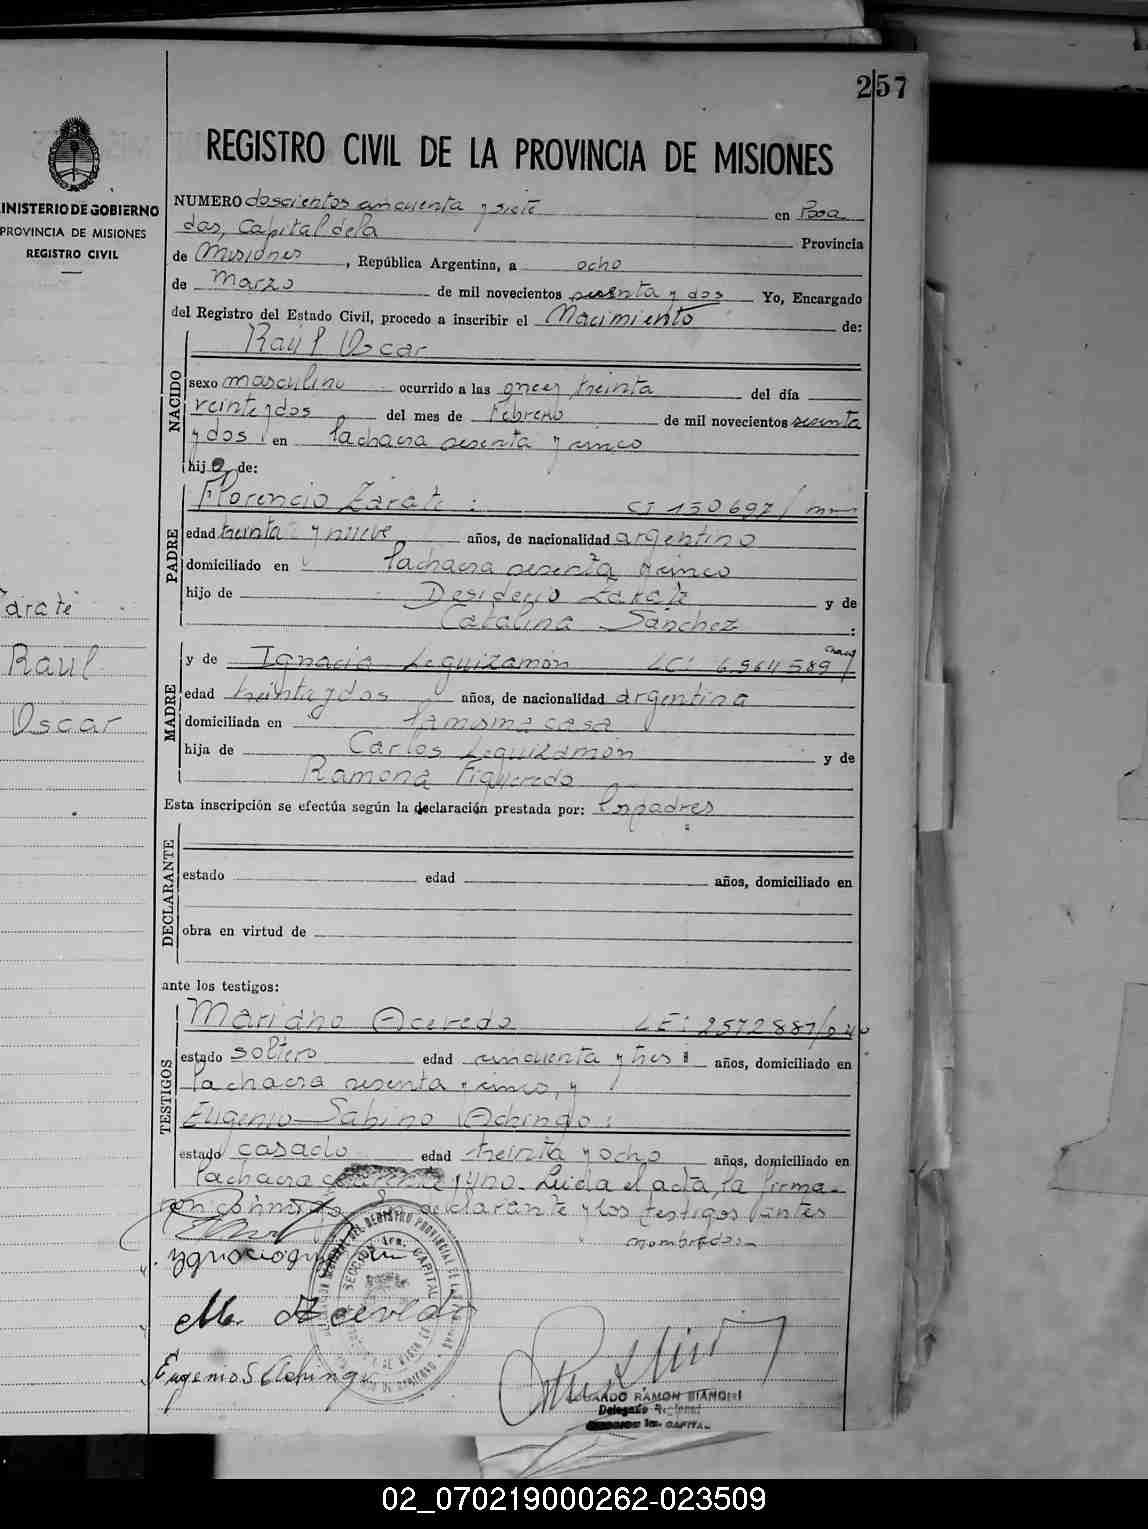 257
MINISTERIO DE GOBIERNO
PROVINCIA DE MISIONES
REGISTRO CIVIL
REGISTRO CIVIL DE LA PROVINCIA DE MISIONES
NUMERO doscientos cincuenta y siete en Posa
das, Capital de la Provincia
de Misiones, República Argentina, a ocho
de Marzo de mil novecientos sesenta y dos Yo, Encargado
del Registro del Estado Civil, procedo a inscribir el Nacimiento de:
Raúl Oscar
NACIDO
sexo masculino ocurrido a las once y treinta del día
veinte y dos del mes de Febrero de mil novecientos sesenta
y dos en la chacra sesenta y cinco
hijo de:
PADRE
Florencio Zárate: CI 130697/
edad treinta y nueve años, de nacionalidad argentino
domiciliado en la chacra sesenta y cinco
hijo de Desiderio Zárate y de
Catalina Sánchez :
Zárate
Raúl
Oscar
MADRE
y de Ignacia Leguizamón LC: 6964589/
edad treinta y dos años, de nacionalidad argentina
domiciliada en la misma casa
hija de Carlos Leguizamón y de
Ramona Figueredo
Esta inscripción se efectúa según la declaración prestada por: los padres
DECLARANTE
estado edad años, domiciliado en
obra en virtud de
ante los testigos:
TESTIGOS
Mariano Acevedo LE: 2572887/
estado soltero edad cincuenta y tres años, domiciliado en
la chacra sesenta y cinco, y
Eugenio Sabino Achinga:
estado casado edad treinta y ocho años, domiciliado en
la chacra y uno. Leida el acta, la firma-
ron conmigo declarante y los testigos antes
nombrados
M. Acevedo
Eugenio S Achinga
SECCION 1ra. CAPITAL
EDUARDO RAMON BIANCHI
Delegado Regional
SECCION 1ra. CAPITAL
02_070219000262-023509